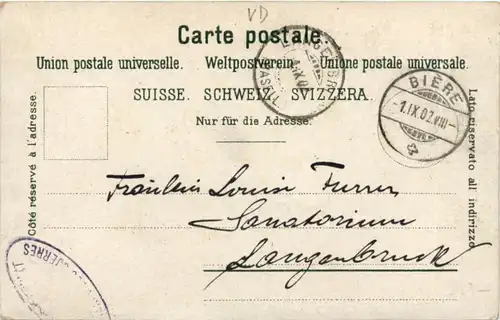 VD
Carte postale.
Union postale universelle. Weltpostverein. Unione postale universale.
SUISSE. SCHWEIZ. SVIZZERA.
Nur für die Adresse.
Côté réservé à l'adresse.
Lato riservato all indirizzo
BIÈRE
1.IX.02.VIII-
Fräulein Louise Furrer
Sanatorium
Langenbruck